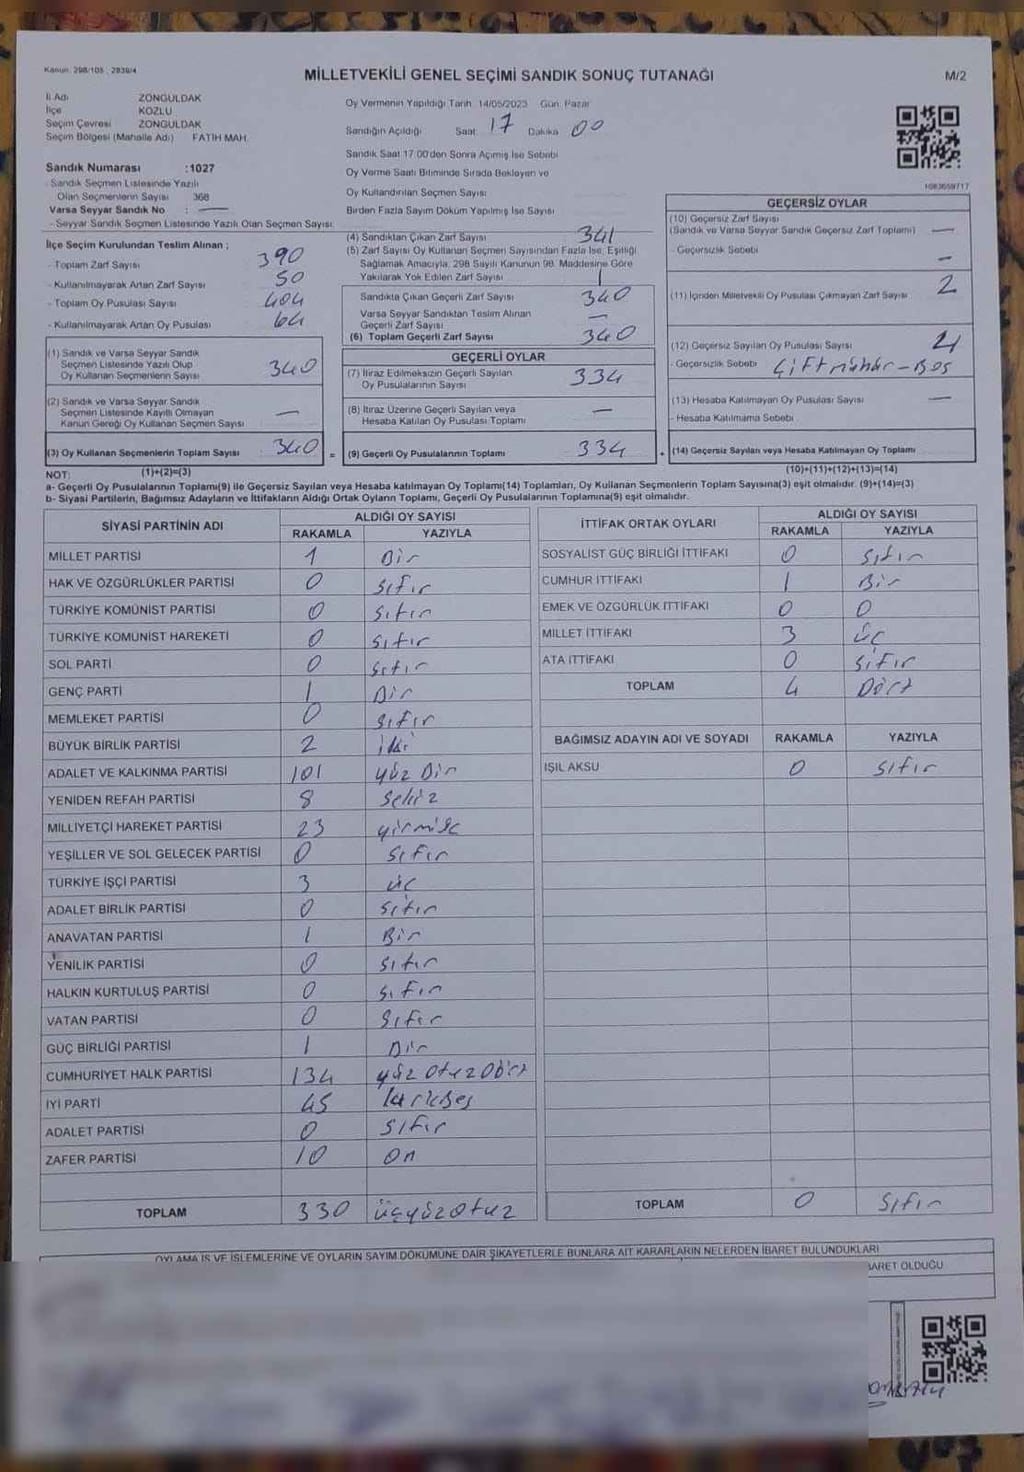 Kanun: 298/105 ; 2839/4
MİLLETVEKİLİ GENEL SEÇİMİ SANDIK SONUÇ TUTANAĞI
M/2
İl Adı ZONGULDAK
İlçe KOZLU
Seçim Çevresi ZONGULDAK
Seçim Bölgesi (Mahalle Adı) FATİH MAH.
Sandık Numarası :1027
- Sandık Seçmen Listesinde Yazılı
Olan Seçmenlerin Sayısı 368
Varsa Seyyar Sandık No : —
- Seyyar Sandık Seçmen Listesinde Yazılı Olan Seçmen Sayısı:
İlçe Seçim Kurulundan Teslim Alınan ;
- Toplam Zarf Sayısı 390
- Kullanılmayarak Artan Zarf Sayısı 50
- Toplam Oy Pusulası Sayısı 404
- Kullanılmayarak Artan Oy Pusulası 64
(1) Sandık ve Varsa Seyyar Sandık
Seçmen Listesinde Yazılı Olup
Oy Kullanan Seçmenlerin Sayısı 340
(2) Sandık ve Varsa Seyyar Sandık
Seçmen Listesinde Kayıtlı Olmayan
Kanun Gereği Oy Kullanan Seçmen Sayısı —
(3) Oy Kullanan Seçmenlerin Toplam Sayısı 340 =
Oy Vermenin Yapıldığı Tarih: 14/05/2023 Gün: Pazar
Sandığın Açıldığı Saat: 17 Dakika 00
Sandık Saat 17:00'den Sonra Açımış İse Sebebi
Oy Verme Saati Bitiminde Sırada Bekleyen ve
Oy Kullandırılan Seçmen Sayısı
Birden Fazla Sayım Döküm Yapılmış İse Sayısı
(4) Sandıktan Çıkan Zarf Sayısı 341
(5) Zarf Sayısı Oy Kullanan Seçmen Sayısından Fazla İse, Eşitliği
Sağlamak Amacıyla, 298 Sayılı Kanunun 98. Maddesine Göre
Yakılarak Yok Edilen Zarf Sayısı 1
Sandıkta Çıkan Geçerli Zarf Sayısı 340
Varsa Seyyar Sandıktan Teslim Alınan
Geçerli Zarf Sayısı —
(6) Toplam Geçerli Zarf Sayısı 340
GEÇERLİ OYLAR
(7) İtiraz Edilmeksizin Geçerli Sayılan
Oy Pusulalarının Sayısı 334
(8) İtiraz Üzerine Geçerli Sayılan veya
Hesaba Katılan Oy Pusulası Toplamı —
(9) Geçerli Oy Pusulalarının Toplamı 334 +
1083659717
GEÇERSİZ OYLAR
(10) Geçersiz Zarf Sayısı
(Sandık ve Varsa Seyyar Sandık Geçersiz Zarf Toplamı) —
- Geçersizlik Sebebi —
(11) İçinden Milletvekili Oy Pusulası Çıkmayan Zarf Sayısı 2
(12) Geçersiz Sayılan Oy Pusulası Sayısı 4
- Geçersizlik Sebebi Çift mühür - Boş
(13) Hesaba Katılmayan Oy Pusulası Sayısı —
- Hesaba Katılmama Sebebi
(14) Geçersiz Sayılan veya Hesaba Katılmayan Oy Toplamı
NOT: (1)+(2)=(3) (10)+(11)+(12)+(13)=(14)
a- Geçerli Oy Pusulalarının Toplamı(9) ile Geçersiz Sayılan veya Hesaba katılmayan Oy Toplamı(14) Toplamları, Oy Kullanan Seçmenlerin Toplam Sayısına(3) eşit olmalıdır. (9)+(14)=(3)
b- Siyasi Partilerin, Bağımsız Adayların ve İttifakların Aldığı Ortak Oyların Toplamı, Geçerli Oy Pusulalarının Toplamına(9) eşit olmalıdır.
SİYASİ PARTİNİN ADI ALDIĞI OY SAYISI
RAKAMLA YAZIYLA
MİLLET PARTİSİ 1 Bir
HAK VE ÖZGÜRLÜKLER PARTİSİ 0 Sıfır
TÜRKİYE KOMÜNİST PARTİSİ 0 Sıfır
TÜRKİYE KOMÜNİST HAREKETİ 0 Sıfır
SOL PARTİ 0 Sıfır
GENÇ PARTİ 1 Bir
MEMLEKET PARTİSİ 0 Sıfır
BÜYÜK BİRLİK PARTİSİ 2 iki
ADALET VE KALKINMA PARTİSİ 101 yüz Bir
YENİDEN REFAH PARTİSİ 8 Sekiz
MİLLİYETÇİ HAREKET PARTİSİ 23 yirmiüç
YEŞİLLER VE SOL GELECEK PARTİSİ 0 Sıfır
TÜRKİYE İŞÇİ PARTİSİ 3 üç
ADALET BİRLİK PARTİSİ 0 Sıfır
ANAVATAN PARTİSİ 1 Bir
YENİLİK PARTİSİ 0 Sıfır
HALKIN KURTULUŞ PARTİSİ 0 Sıfır
VATAN PARTİSİ 0 Sıfır
GÜÇ BİRLİĞİ PARTİSİ 1 Bir
CUMHURİYET HALK PARTİSİ 134 yüz Otuz Dört
İYİ PARTİ 45 kırkBeş
ADALET PARTİSİ 0 Sıfır
ZAFER PARTİSİ 10 On
TOPLAM 330 üçyüzotuz
İTTİFAK ORTAK OYLARI ALDIĞI OY SAYISI
RAKAMLA YAZIYLA
SOSYALİST GÜÇ BİRLİĞİ İTTİFAKI 0 Sıfır
CUMHUR İTTİFAKI 1 Bir
EMEK VE ÖZGÜRLÜK İTTİFAKI 0 0
MİLLET İTTİFAKI 3 üç
ATA İTTİFAKI 0 Sıfır
TOPLAM 4 Dört
BAĞIMSIZ ADAYIN ADI VE SOYADI RAKAMLA YAZIYLA
IŞIL AKSU 0 Sıfır
TOPLAM 0 Sıfır
OYLAMA İŞ VE İŞLEMLERİNE VE OYLARIN SAYIM DÖKÜMÜNE DAİR ŞİKAYETLERLE BUNLARA AİT KARARLARIN NELERDEN İBARET BULUNDUKLARI
BARET OLDUĞU